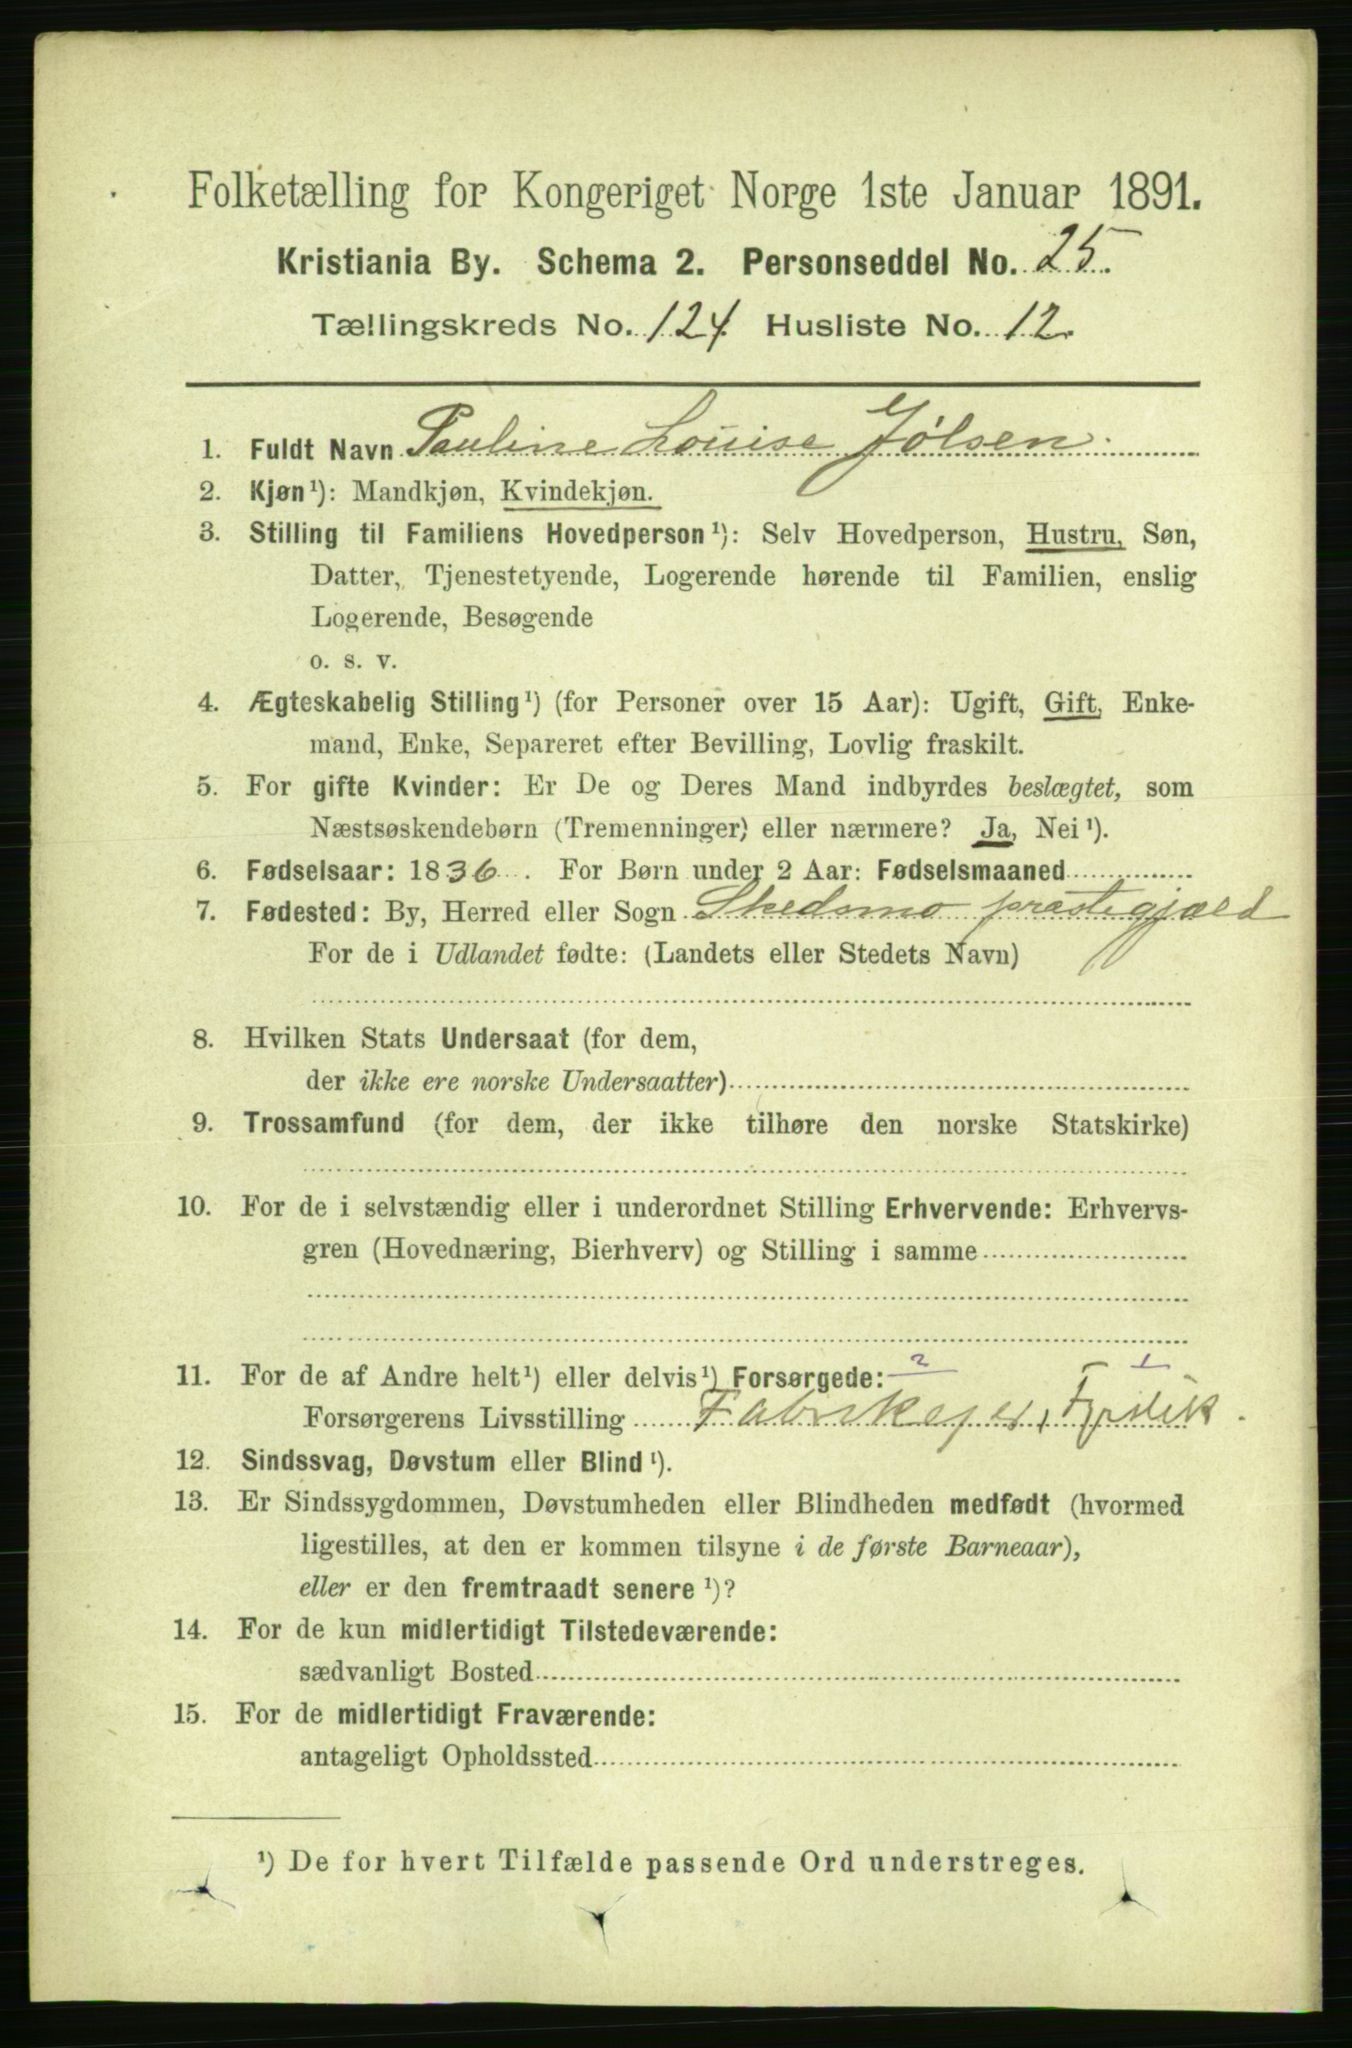 Folketælling for Kongeriget Norge 1ste Januar 1891.
Kristiania By. Schema 2. Personseddel No. 25.
Tællingskreds No. 124 Husliste No. 12.
1. Fuldt Navn Pauline Louise Jølsen.
2. Kjøn¹): Mandkjøn, Kvindekjøn.
3. Stilling til Familiens Hovedperson¹): Selv Hovedperson, Hustru, Søn,
Datter, Tjenestetyende, Logerende hørende til Familien, enslig
Logerende, Besøgende
o. s. v.
4. Ægteskabelig Stilling¹) (for Personer over 15 Aar): Ugift, Gift, Enke-
mand, Enke, Separeret efter Bevilling, Lovlig fraskilt.
5. For gifte Kvinder: Er De og Deres Mand indbyrdes beslægtet, som
Næstsøskendebørn (Tremenninger) eller nærmere? Ja, Nei¹).
6. Fødselsaar: 1836. For Børn under 2 Aar: Fødselsmaaned
7. Fødested: By, Herred eller Sogn Skedsmo præstegjæld
For de i Udlandet fødte: (Landets eller Stedets Navn)
8. Hvilken Stats Undersaat (for dem,
der ikke ere norske Undersaatter)
9. Trossamfund (for dem, der ikke tilhøre den norske Statskirke)
10. For de i selvstændig eller i underordnet Stilling Erhvervende: Erhvervs-
gren (Hovednæring, Bierhverv) og Stilling i samme
11. For de af Andre helt¹) eller delvis¹) Forsørgede: 2 1
Forsørgerens Livsstilling Fabrikejer, Fyrstik.
12. Sindssvag, Døvstum eller Blind¹).
13. Er Sindssygdommen, Døvstumheden eller Blindheden medfødt (hvormed
ligestilles, at den er kommen tilsyne i de første Barneaar),
eller er den fremtraadt senere¹)?
14. For de kun midlertidigt Tilstedeværende:
sædvanligt Bosted
15. For de midlertidigt Fraværende:
antageligt Opholdssted
¹) De for hvert Tilfælde passende Ord understreges.